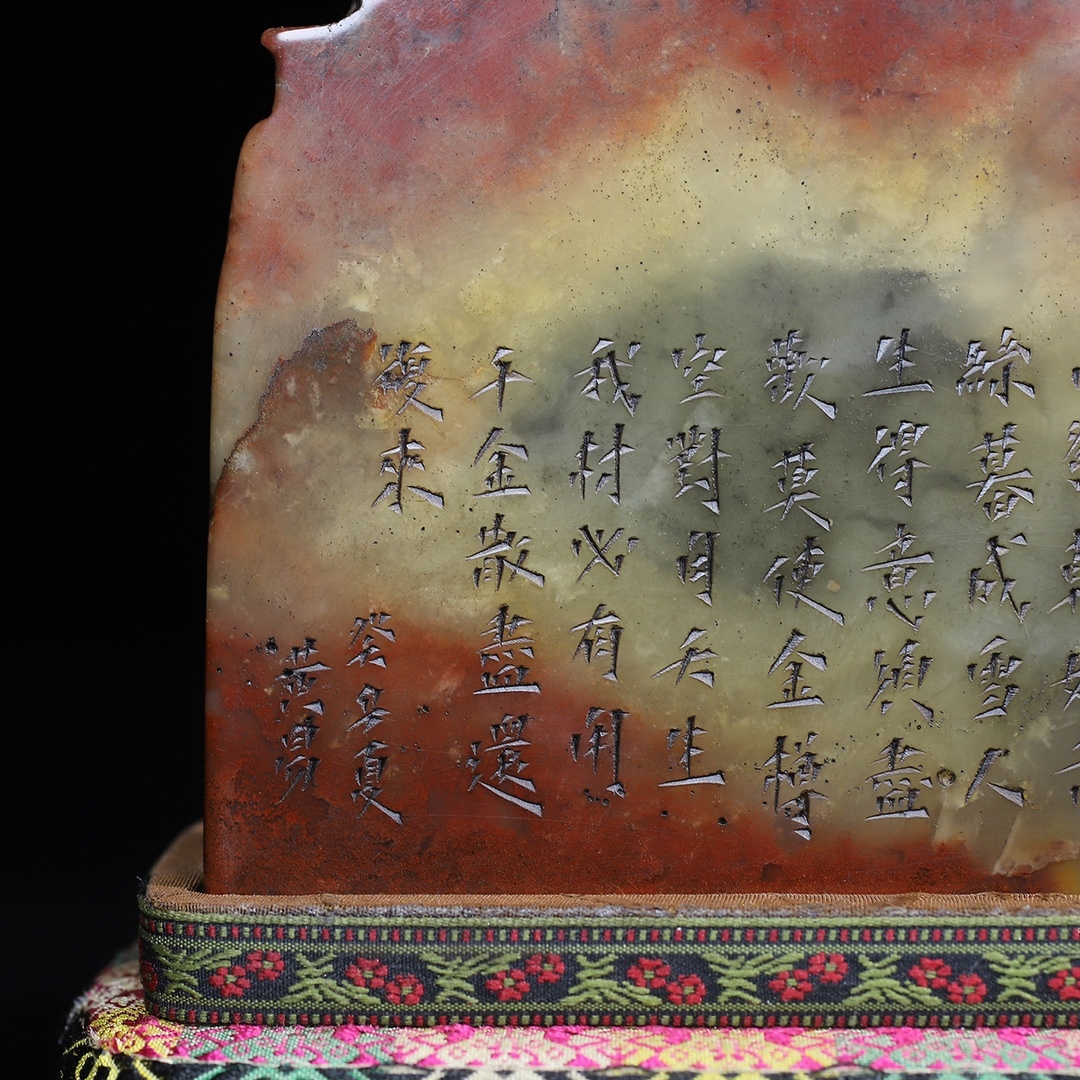 絲暮成雪人
生得意須盡
歡莫使金樽
空對月天生
我材必有用
千金散盡還
復來
癸卯夏
黄